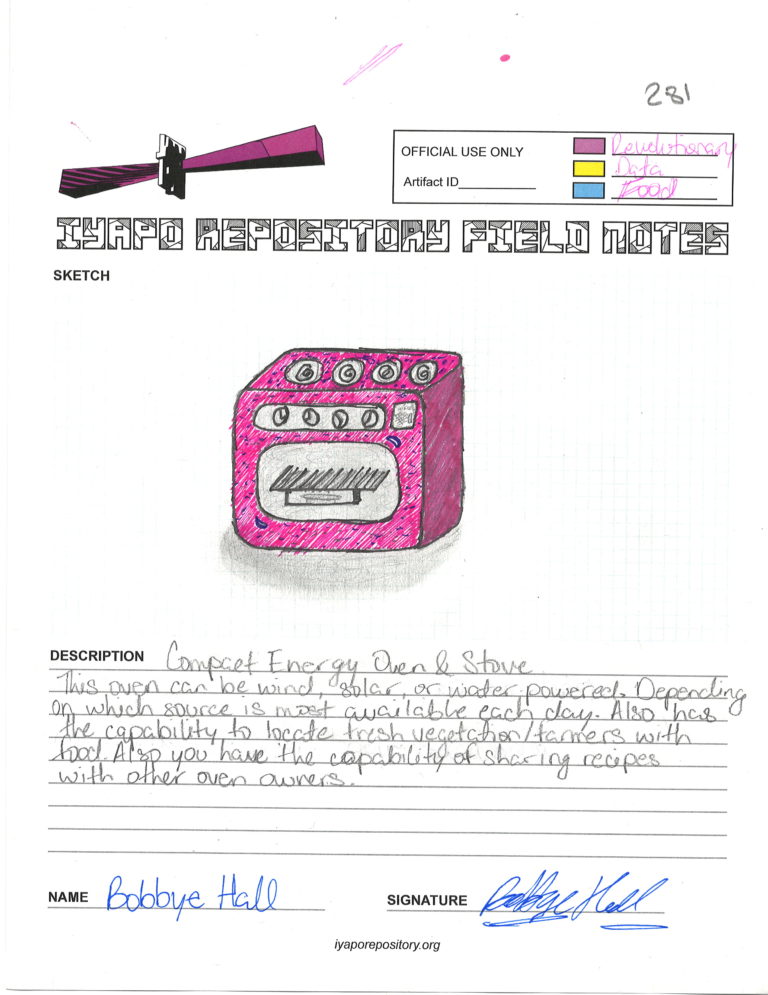 281
OFFICIAL USE ONLY
Revolutionary
Data
Artifact ID
Food
IYAPO REPOSITORY FIELD NOTES
SKETCH
DESCRIPTION Compact Energy Oven & Stove
This oven can be wind, solar, or water powered. Depending
on which source is most available each day. Also has
the capability to locate fresh vegetation/farmers with
food. Also you have the capability of sharing recipes
with other oven owners.
NAME Bobbye Hall
SIGNATURE Bobbye Hall
iyaporepository.org